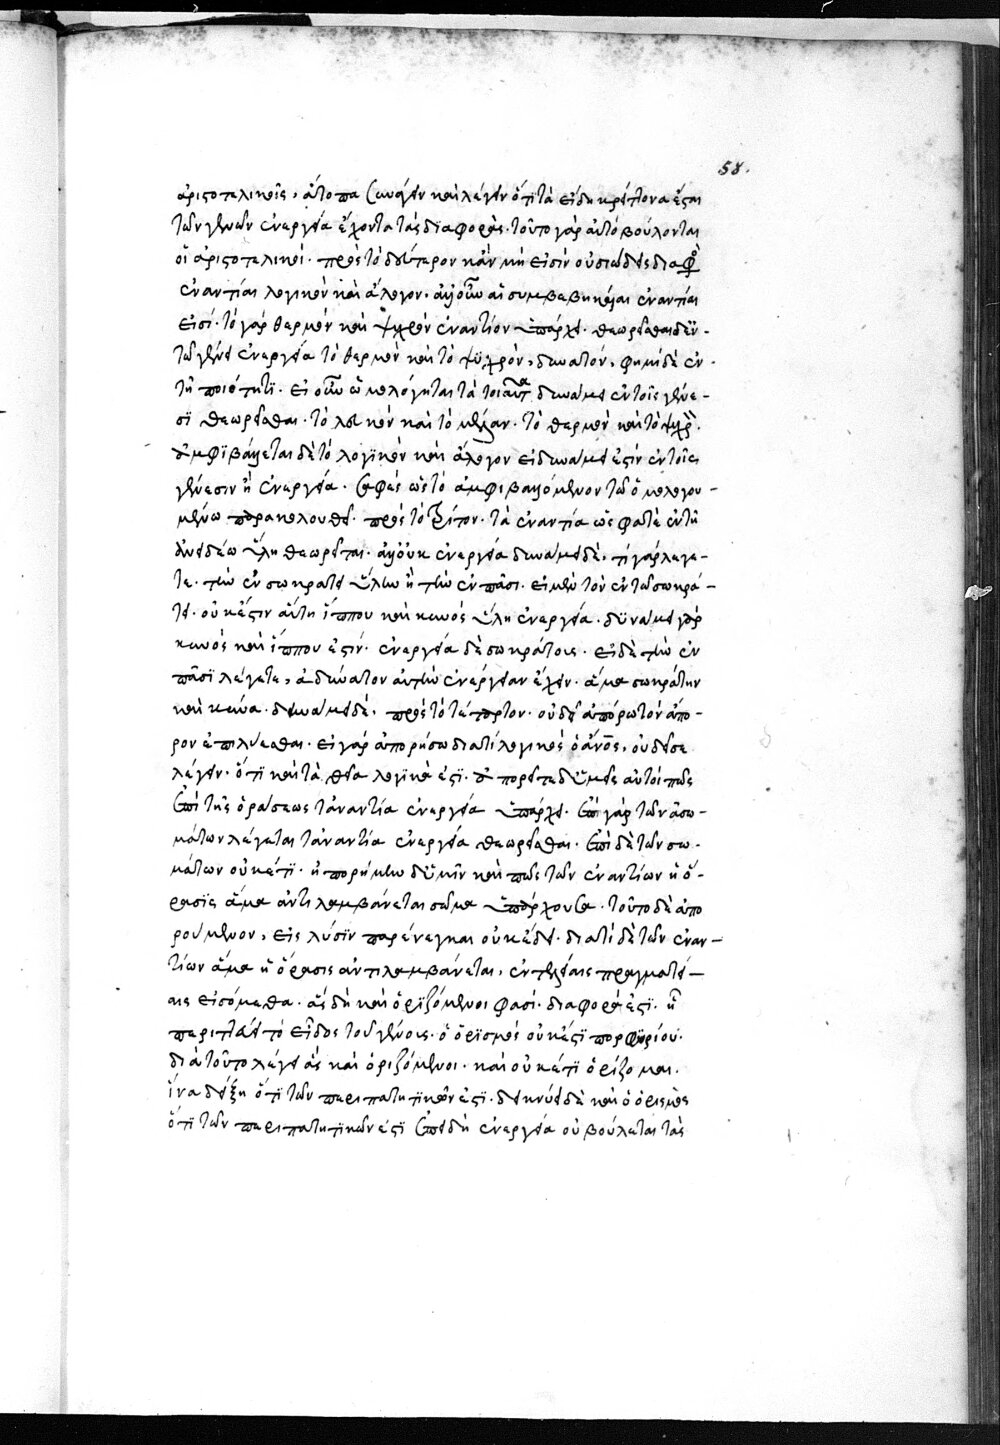 58.
ἀριστοτελικοῖς, ἄτοπα συνάγειν καὶ λέγειν ὅτι τὰ εἴδη κρείττονα ἔσται
τῶν γενῶν ἐνεργείᾳ ἔχοντα τὰς διαφοράς. τοῦτο γὰρ αὐτὸ βούλονται
οἱ ἀριστοτελικοί. πρὸς τὸ δεύτερον κἂν μή εἰσιν οὐσιώδεις διαφο
ἐναντίαι λογικὸν καὶ ἄλογον. ἀλλ' οὖν αἱ συμβεβηκυῖαι ἐναντίαι
εἰσί. τὸ γὰρ θερμὸν καὶ ψυχρὸν ἐναντίον ὑπάρχει. θεωρεῖσθαι δὲ ἐν -
τῷ γένει ἐνεργείᾳ τὸ θερμὸν καὶ τὸ ψυχρὸν, δυνατόν, φημὶ δὲ ἐν -
τῇ ποιότητι. εἰ οὖν ὡμολόγηται τὰ τοιαῦτα δυνάμει ἐν τοῖς γένε -
σι θεωρεῖσθαι. τὸ λευκὸν καὶ τὸ μέλαν. τὸ θερμὸν καὶ τὸ ψυχρὸν.
ἀμφιβάλλεται δὲ τὸ λογικὸν καὶ ἄλογον εἰ δυνάμει ἐστιν ἐν τοῖς
γένεσιν ἢ ἐνεργείᾳ. σαφὲς ὡς τὸ ἀμφιβαλλόμενον τῷ ὁμολογου -
μένῳ παρακολουθεῖ. πρὸς τὸ τρίτον. τὰ ἐναντία ὡς φατὲ ἐν τῇ
ἀνειδέῳ ὕλῃ θεωρεῖται. ἀλλ' οὐκ ἐνεργείᾳ δυνάμει δὲ, τί γὰρ λέγε -
τε. τὴν ἐν σωκράτει ὕλην ἢ τὴν ἐν πᾶσι. εἰ μὲν τὸν ἐν τῷ σωκρά -
τει. οὐκ ἔστιν αὕτη ἵππου καὶ κυνὸς ὕλη ἐνεργείᾳ. δυνάμει γὰρ
κυνὸς καὶ ἵππου ἐστίν. ἐνεργείᾳ δὲ σωκράτους. εἰ δὲ τὴν ἐν
πᾶσι λέγετε, ἀδύνατον αὐτὴν ἐνέργειαν ἔχειν. ἅμα σωκράτην
καὶ κύνα. δυνάμει δέ. πρὸς τὸ τέταρτον. οὐ δεῖ ἀπόρῳ τὸν ἄπο -
ρον ἐπιλύεσθαι. εἰ γὰρ ἀπορήσω διατί λογικὸς ὁ ἄνος, οὐ δεῖ σε
λέγειν. ὅτι καὶ τὰ θεῖα λογικὰ ἐστι. ἀπορεῖτε δὲ ὑμεῖς αὐτοὶ πῶς
ἐπὶ τῆς ὁράσεως τἀναντία ἐνεργείᾳ ὑπάρχει. ἐπὶ γὰρ τῶν ἀσω -
μάτων λέγεται τἀναντία ἐνεργείᾳ θεωρεῖσθαι. ἐπὶ δὲ τῶν σω -
μάτων οὐκέτι. ἠπορήκην δὲ ὑμῖν καὶ πῶς τῶν ἐναντίων ἡ ὅ -
ρασις ἅμα ἀντιλαμβάνεται σῶμα ὑπάρχουσα. τοῦτο δὲ ἀπο
ρούμενον, εἰς λύσιν παρενέγκαι οὐκ ἔδει. διατί δὲ τῶν ἐναν -
τίων ἅμα ἡ ὅρασις ἀντιλαμβάνεται, ἐν τελείαις πραγματεί -
αις εἰσόμεθα. ἃς δὴ καὶ ὁριζόμενοι φασί. διαφορά ἐστι. ᾗ
περιττεύει τὸ εἶδος τοῦ γένους. ὁ ὁρισμός οὐκ ἔστι πορφυρίου.
διὰ τοῦτο λέγει ἃς καὶ ὁριζόμενοι. καὶ οὐκέτι ὁρίζομαι.
ἵνα δείξῃ ὅτι τῶν περιπατητικῶν ἐστι. δεικνύει δὲ καὶ ὁ ὁρισμὸς
ὅτι τῶν περιπατητικῶν ἐστι ἐπειδὴ ἐνεργείᾳ οὐ βούλεται τὰς